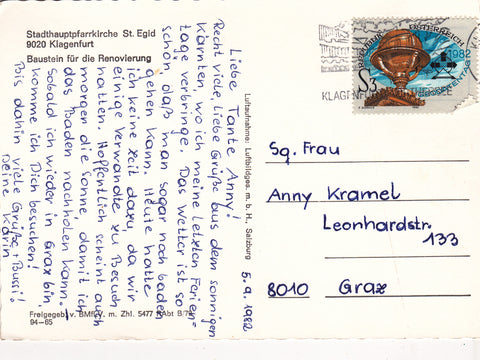 Stadthauptpfarrkirche St. Egid
9020 Klagenfurt
Baustein für die Renovierung
5.9.1982
Liebe Tante Anny!
Recht viele, liebe Grüße aus dem sonnigen
Kärnten, wo ich meine letzten Ferien-
tage verbringe. Das Wetter ist so
schön, daß man sogar noch baden
gehen kann. Heute hatte
ich keine Zeit dazu, da wir
einige Verwandte zu Besuch
hatten. Hoffentlich scheint auch
morgen die Sonne, damit ich
das Baden nachholen kann.
Sobald ich wieder in Graz bin,
komme ich Dich besuchen!
Bis dahin viele Grüße + Bussi!
Deine Karin
Freigegeben v. BMfLV m. Zhl. 5477 Abt B/
94-65
Luftaufnahme: Luftbildges. m. b. H., Salzburg
REPUBLIK ÖSTERREICH
S3
1982
KLAGENFU
Sg. Frau
Anny Kramel
Leonhardstr.
133
8010 Graz